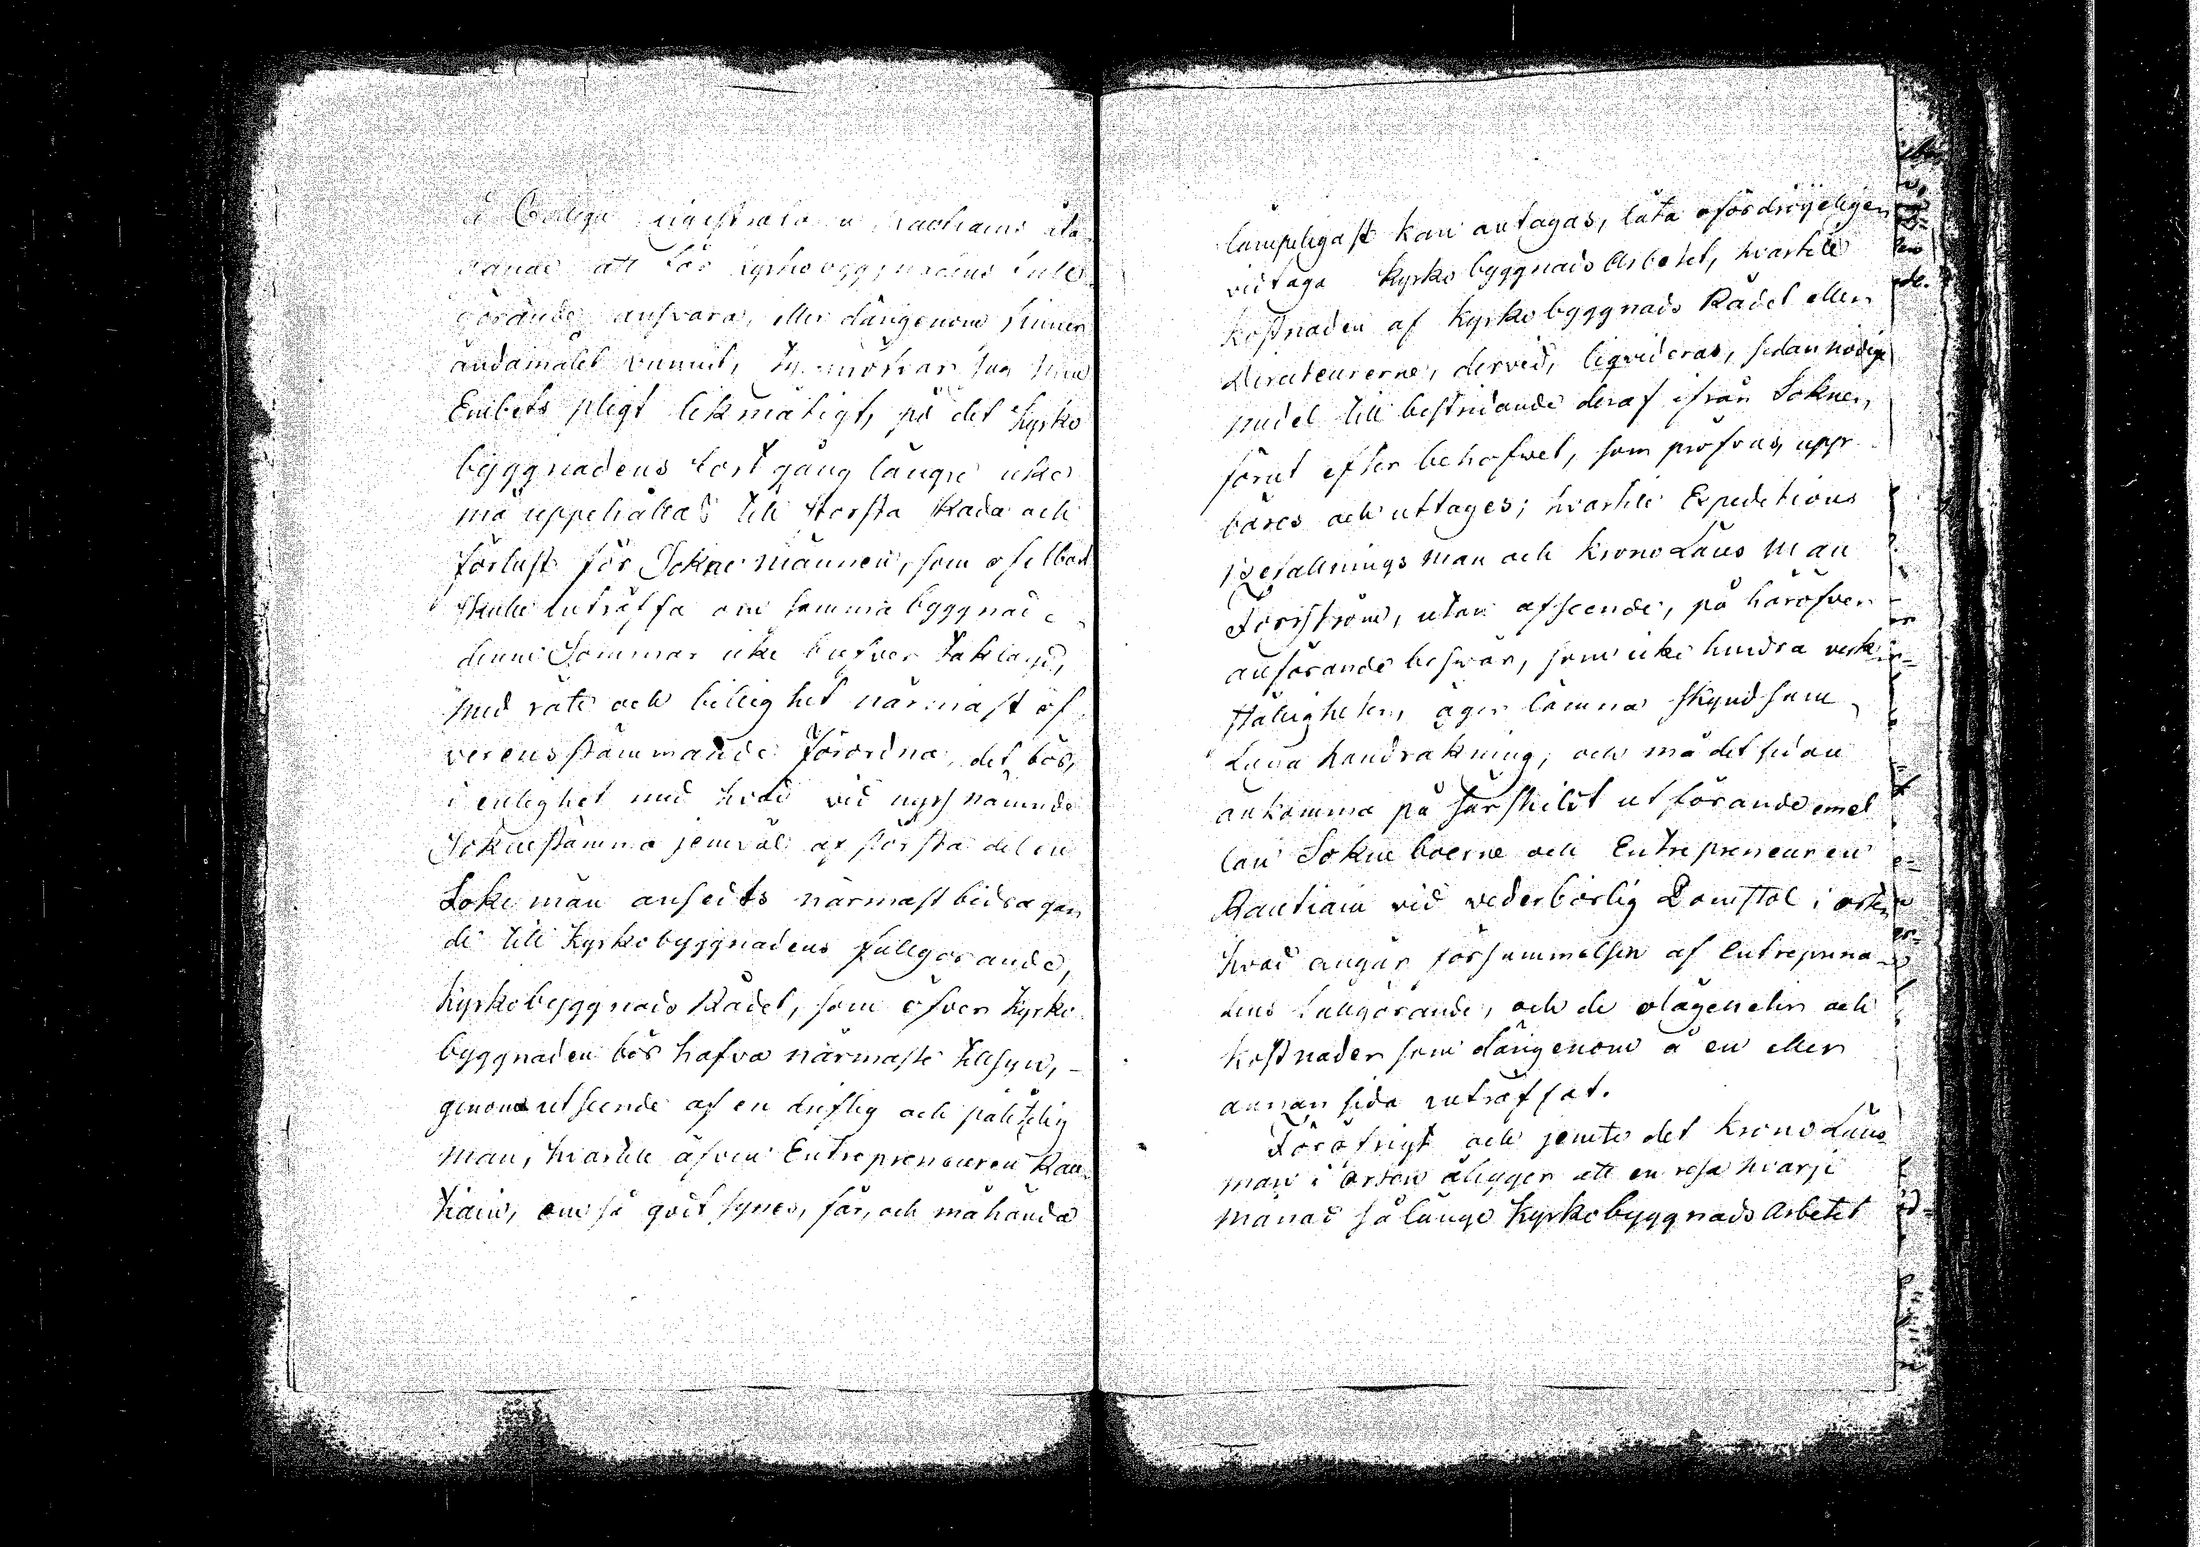 å
att för Kyrkobyggnadens full
görande ansvara, eller därigenom hinner
ändamålet vunnit,
Embets pligt likmätigt, på det Kyrko
byggnadens fortgång längre icke
må uppehållas till största skada och
förlust för Sokne männen, som ofelbart
skulle inträffa om samma byggnad
denne Sommar icke blefver taklagd,
med rätt och billighet närmast öf
verensstämmande förordna, det bör,
i enlighet med hvad vid nyss nämnde
Soknestämma jemväl af största delen
Soknemän ansedts närmast bidragan
de till Kyrkobyggnadens fullgörande,
Kyrkobyggnads Rådet, som öfver Kyrko
byggnaden bör hafva närmaste tillsyn, -
genom utseende af en driftig och pålitelig
man, hvartill äfven Entrepreneuren Rau
tiain, om så godt synes, får, och måhända
lämpeligast kan antagas, låta ofördröjeligen
vidtaga Kyrko byggnads Arbetet, hvartill
kostnaden af Kyrko byggnads Rådet eller
Directeurerne, dervid, liqvideras, sedan nödige
medel till bestridande deraf ifrån Soknen,
förut efter behofvet, som pröfvas, upp
bäres och uttages; hvartill Expeditions
Befallnings man och Krono Läns man
Forsström, utan afseende, på häröfver
anförande besvär, som icke hindra verk
ställigheten, äger lämna skyndsam
Laga handräkning; och må det sidan
ankomma på särskildt utförande emel
lan Sokneboerne och Entrepreneuren
Rautiain vid vederbörlig Domstol i orten
hvad angår försummelsen af Entreprena
dens fullgörande, och de olägenheter och
kostnader som därigenom å en eller
annan sida inträffat.
Föröfrigt och jemte det Krono Läns
man i Orten åligger att en resa hvarje
månad så länge Kyrkobyggnads Arbetet